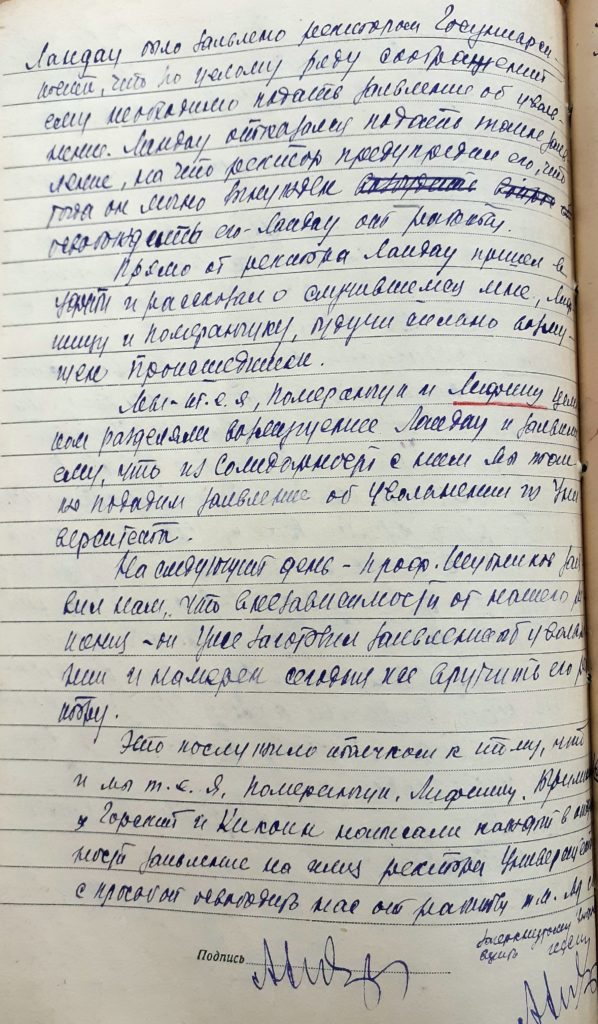 Ландау было заявлено ректором Госуниверси-
тета, что по целому ряду соображений
ему необходимо подать заявление об уволь-
нении. Ландау отказался подать такое заяв-
ление, на что ректор предупредил его, что
тогда он лично вынужден
освободить его-Ландау от работы.
Прямо от ректора Ландау пришел в
и рассказал о случившемся мне, Лиф-
шицу и Померанчуку, будучи сильно возму-
щен происшедшим.
Мы-т.е. я, Померанчук и Лифшиц цели-
ком разделяли возмущение Ландау и заявили
ему, что из солидарности с ним мы так-
же подадим заявление об увольнении из Уни
верситета.
На следующий день - проф. Шубников зая
вил нам, что вне зависимости от нашего ре
шения - он уже заготовил заявление об увольне
нии и намерен сегодня же вручить его рек
тору.
Это послужило толчком к тому, что
и мы т.е. я, Померанчук, Лифшиц,
Горский и Кикоин написали каждый в отдель
ности заявление на имя ректора Университета
с просьбой освободить нас от работы т.к.
Подпись